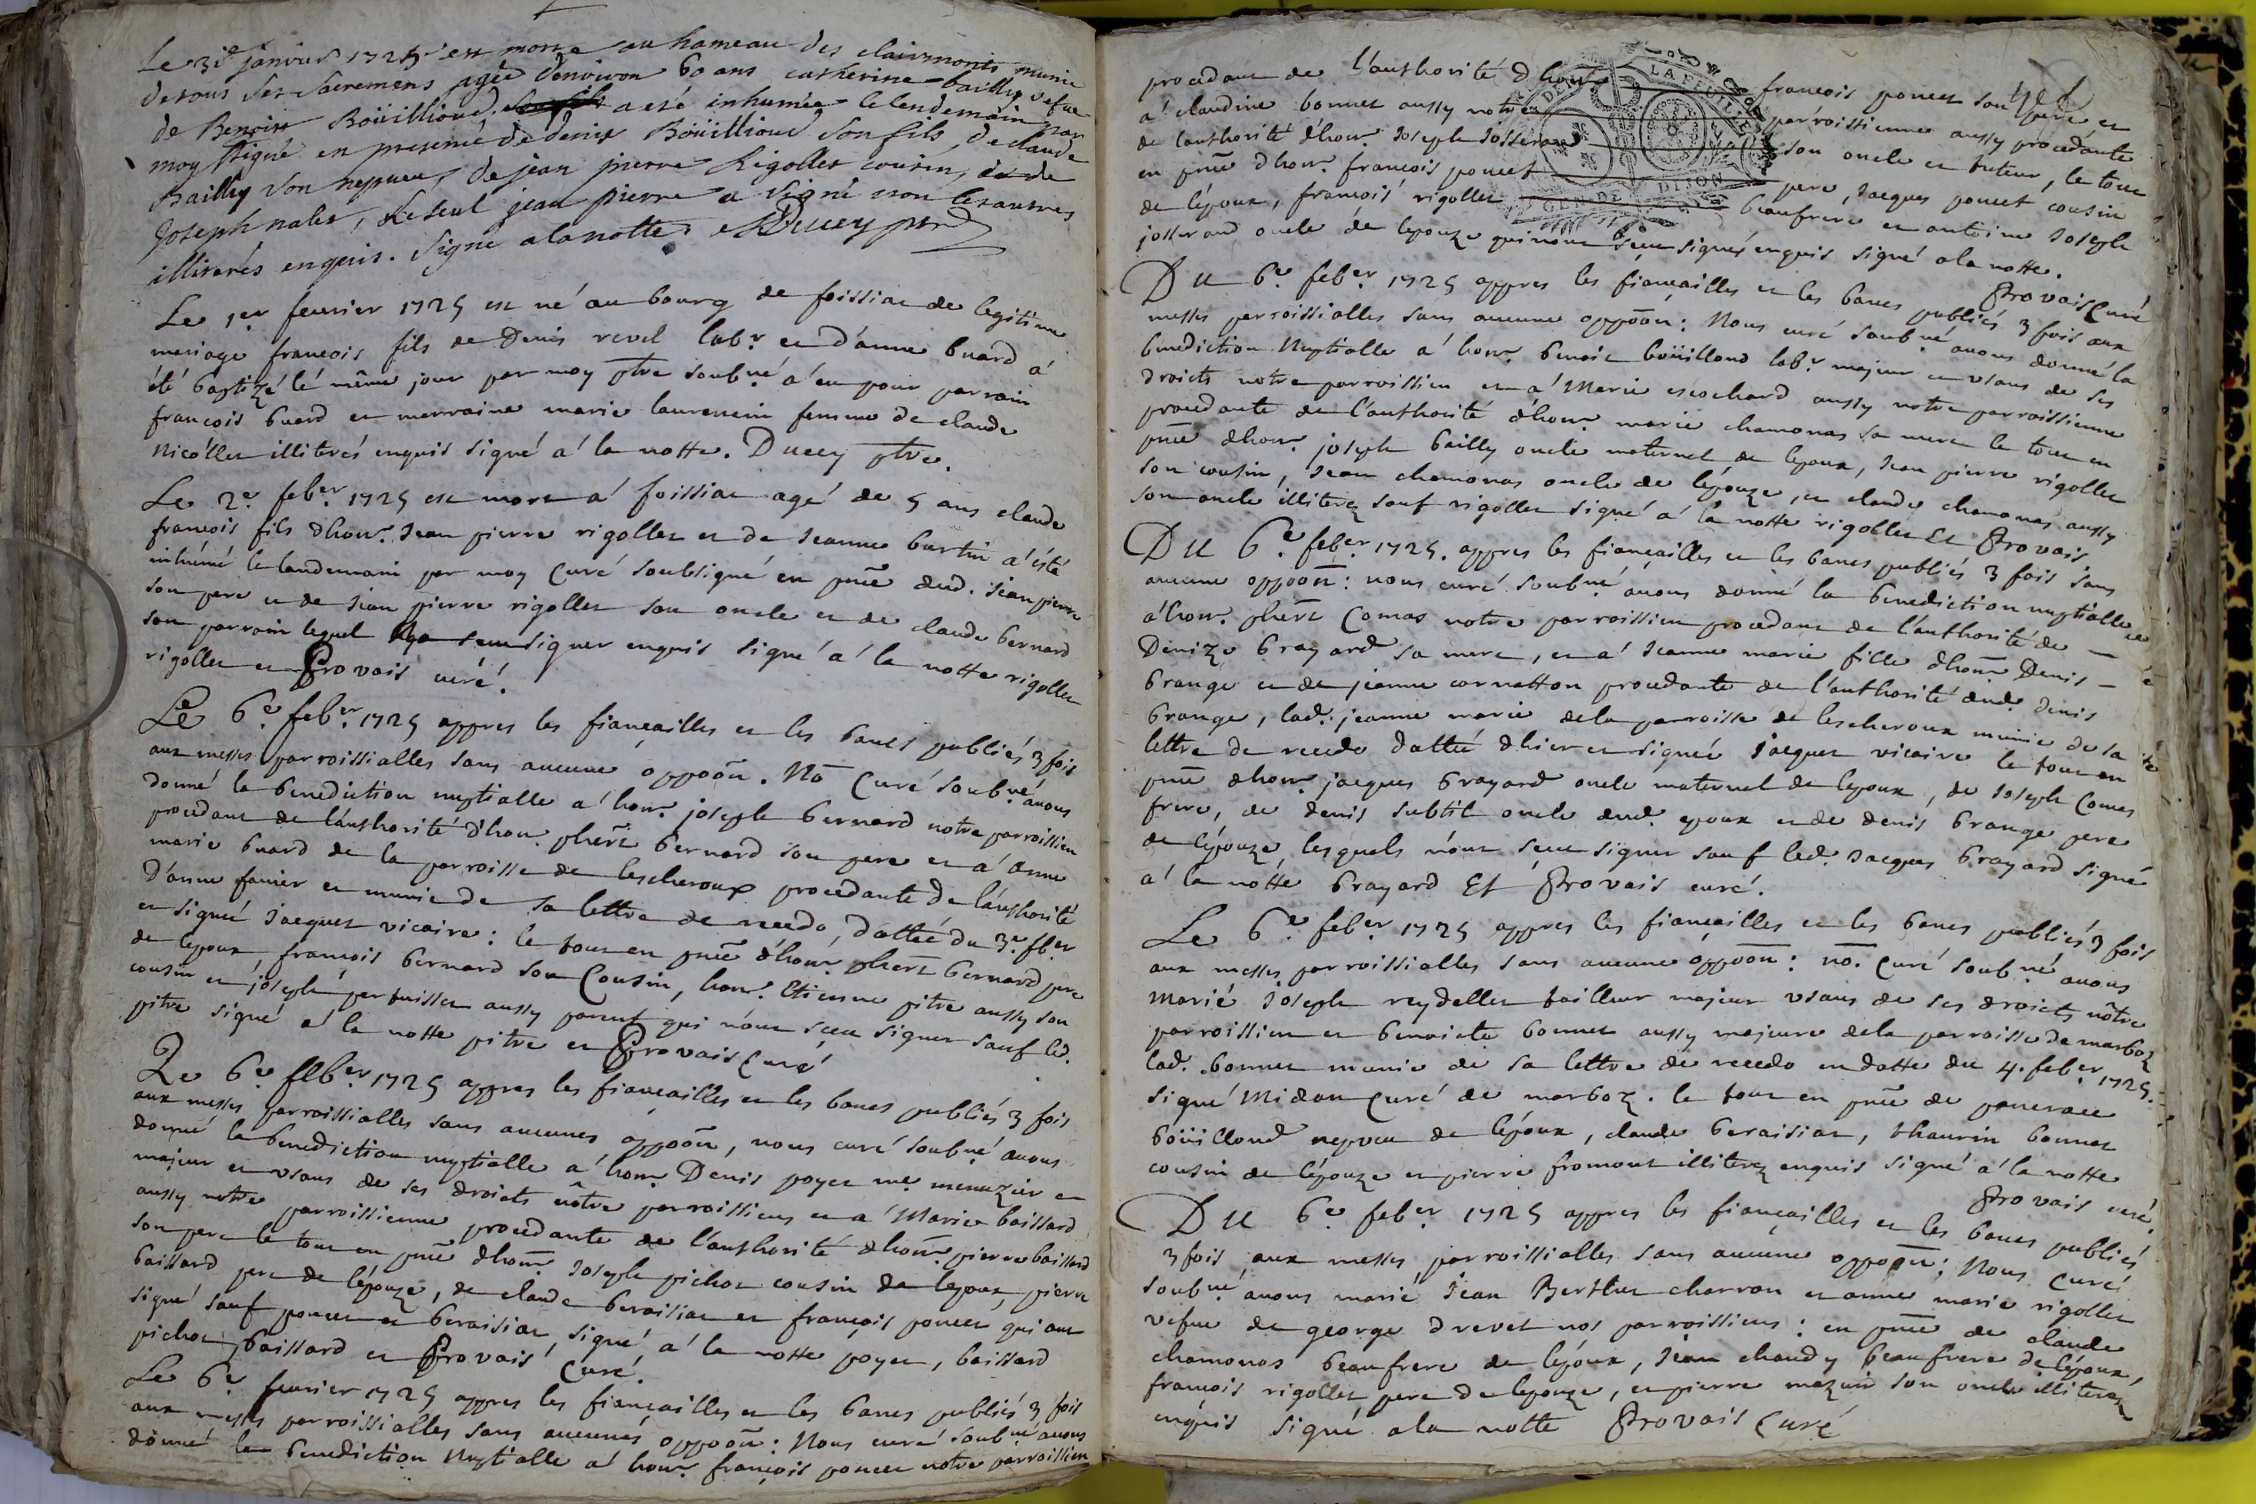 Le 31e janvier 1725 est morte au hameau des clairmonts munie
de tous ses Sacremens agée d'environ 60 ans catherine bailly vefue
de Benoist Boüillioud a esté inhumée le lendemain par
moy ssigné en presence de denis Boüillioud son fils, de claude
Bailly son nepueu, de jean pierre Rigollet cousin, et de
Joseph nales, Le seul jean pierre a signé non les autres
illiterés enquis. signé a la notte. Ducey ptre
Le 1er feurier 1725 est né au bourg de foissiac de legitime
mariage francois fils de Denis revel labr et d'anne buard a
été baptizé lé même jour par moy ptre soubné a eu pour parrain
francois buard et marraine marie laurencin femme de claude
Nicollet illiterés enquis signé a la notte. Ducey ptre.
Le 2e feber 1725 est mort a foissiac agé de 5 ans claude
francois fils d'honr. Jean pierre rigollet et de Jeanne burtin a été
inhúmé le landemain par moy Curé soubsigné en pnce dud. Jean pierre
son pere et de Jean pierre rigollet son oncle et de claude bernard
son parrain lequel n'a sceu signer enquis signé a la notte rigollet
rigollet et Provais curé.
Le 6e feber 1725 appres les fiançailles et les bancs publiés 3 fois
aux messes parroissialles sans aucune oppoon. No Curé soubné auons
donné la benediction nuptialle a honr. joseph bernard notre parroissien
procedant de l'authorité d'honr. phert bernard son pere et a anne
marie buard de la parroisse de lescheroux procedante de l'authorité
D'anne favier et munie de sa lettre de recedo dattée du 3e. fber
et signée Jacquet vicaire: le tout en pnce d'honr phert bernard pere
de lepoux, françois bernard son Cousin, honr. Etienne pitre aussy son
cousin et joseph pertuisset aussy parent qui n'ont sceu signer sauf led.
pitre signé a la notte pitre et Provais Curé
Le 6e feber 1725 appres les fiançailles et les bancs publiés 3 fois
aux messes parroissialles sans aucunes oppoon, nous curé soubné auons
donné la benediction nuptialle a honr Denis poyet me menuzier
majeur et usant de ses droicts nôtre parroissiens et a Marie baissard
aussy notre parroissienne procedante de l'authorité d'honr pierre baissard
son pere le tout en pnce d'honr Joseph pichot cousin de lepoux, pierre
baissard pere de lépouze, de claude beraisiat et françois poncet qui ont
signé sauf poncet et beraisiat, signé a la notte poyet, baissard
pichot, baissard et Provais Curé.
Le 6e feurier 1725 appres les fiançailles et les bancs publiés 3 fois
aux messes parroissialles sans aucunes oppoon: Nous curé soubné auons
donné la benediction Nuptialle a honr. françois poncet notre parroissien
procedant de l'authorité d'honr francois poncet son pere et
a claudine bonnet aussy notre parroissienne aussy procedante
de l'authorité d'honr. Joseph Josserand son oncle et tuteur, le tout
en pnce d'honr. francois poncet pere, Jacques poncet cousin
de lépoux, francois rigollet beaufrere et antoine Joseph
josserand oncle de lepouze qui n'ont sceu signer enquis signé a la notte.
Provais Curé
Du 6e feber 1725 appres les fiançailles et les bancs publiés 3 fois aux
messes parroissialles sans aucune oppoon: Nous curé soubné auons donné la
benediction Nuptialle a honr. benoit boüilloud labr majeur et usant de ses
droicts notre parroissien et a Marie escochard aussy notre parroissienne
procedante de l'authorité d'honr. marie chamonas sa mere le tout en
pnce d'honr joseph bailly oncle maternel de lepoux, Jean pierre rigollet
son cousin, Jean chamonas oncle de lépouze, et claude chamonas aussy
son oncle illiterez sauf rigollet signé a la notte rigollet Et Provais
Du 6e. feber. 1725. appres les fiançailles et les bancs publiés 3 fois sans
aucune oppoon: nous curé soubné auons donné la benediction nuptialle
a honr. phert Comas notre parroissien procedant de l'authorité de
Denize brayard sa mere, et a Jeanne marie fille d'honr Denis
brange et de jeanne cornatton procedante de l'authorité dud. denis
brange, lad. jeanne marie de la parroisse de lescheroux munie de sa
lettre de recedo dattée d'hier et signée Jacquet vicaire le tout en
pnce d'honr jacques brayard oncle maternel de lepoux, de Joseph Comas
frere, de denis subtil oncle dud. epoux et de denis brange pere
de lépouze, lesquels n'ont sceu signer sauf led. Jacques brayard signé
a la notte brayard Et Provais curé.
Le 6e feber 1725 appres les fiançailles et les bancs publiés 3 fois
aux messes parroissialles sans aucune oppoon: no. Curé soubné auons
marié Joseph reydellet tailleur majeur usant de ses droicts nôtre
parroissien et benoite bonnet aussy majeure de la parroisse de marboz
lad. bonnet munie de sa lettre de recedo en datte du 4. feber 1725.
signé Midan Curé de marboz. le tout en pnce de pancrace
boüilloud nepveu de lépoux, claude beraisiat, thaurin bonnet
cousin de lépouze et pierre fromont illiterez enquis signé a la notte
Provais curé.
Du 6e feber 1725 appres les fiançailles et les bancs publiés
3 fois aux messes parroissialles sans aucune oppoon: Nous Curé
soubné auons marié Jean Berthet charron et anne marie rigollet
vefue de george drevet nos parroissiens: en pnce de claude
chamonas beaufrere de lépoux, Jean chaudy beaufrere de lépoux,
françois rigollet pere de lepouze, et pierre mazuir son oncle illiterez
enquis signé a la notte Provais Curé